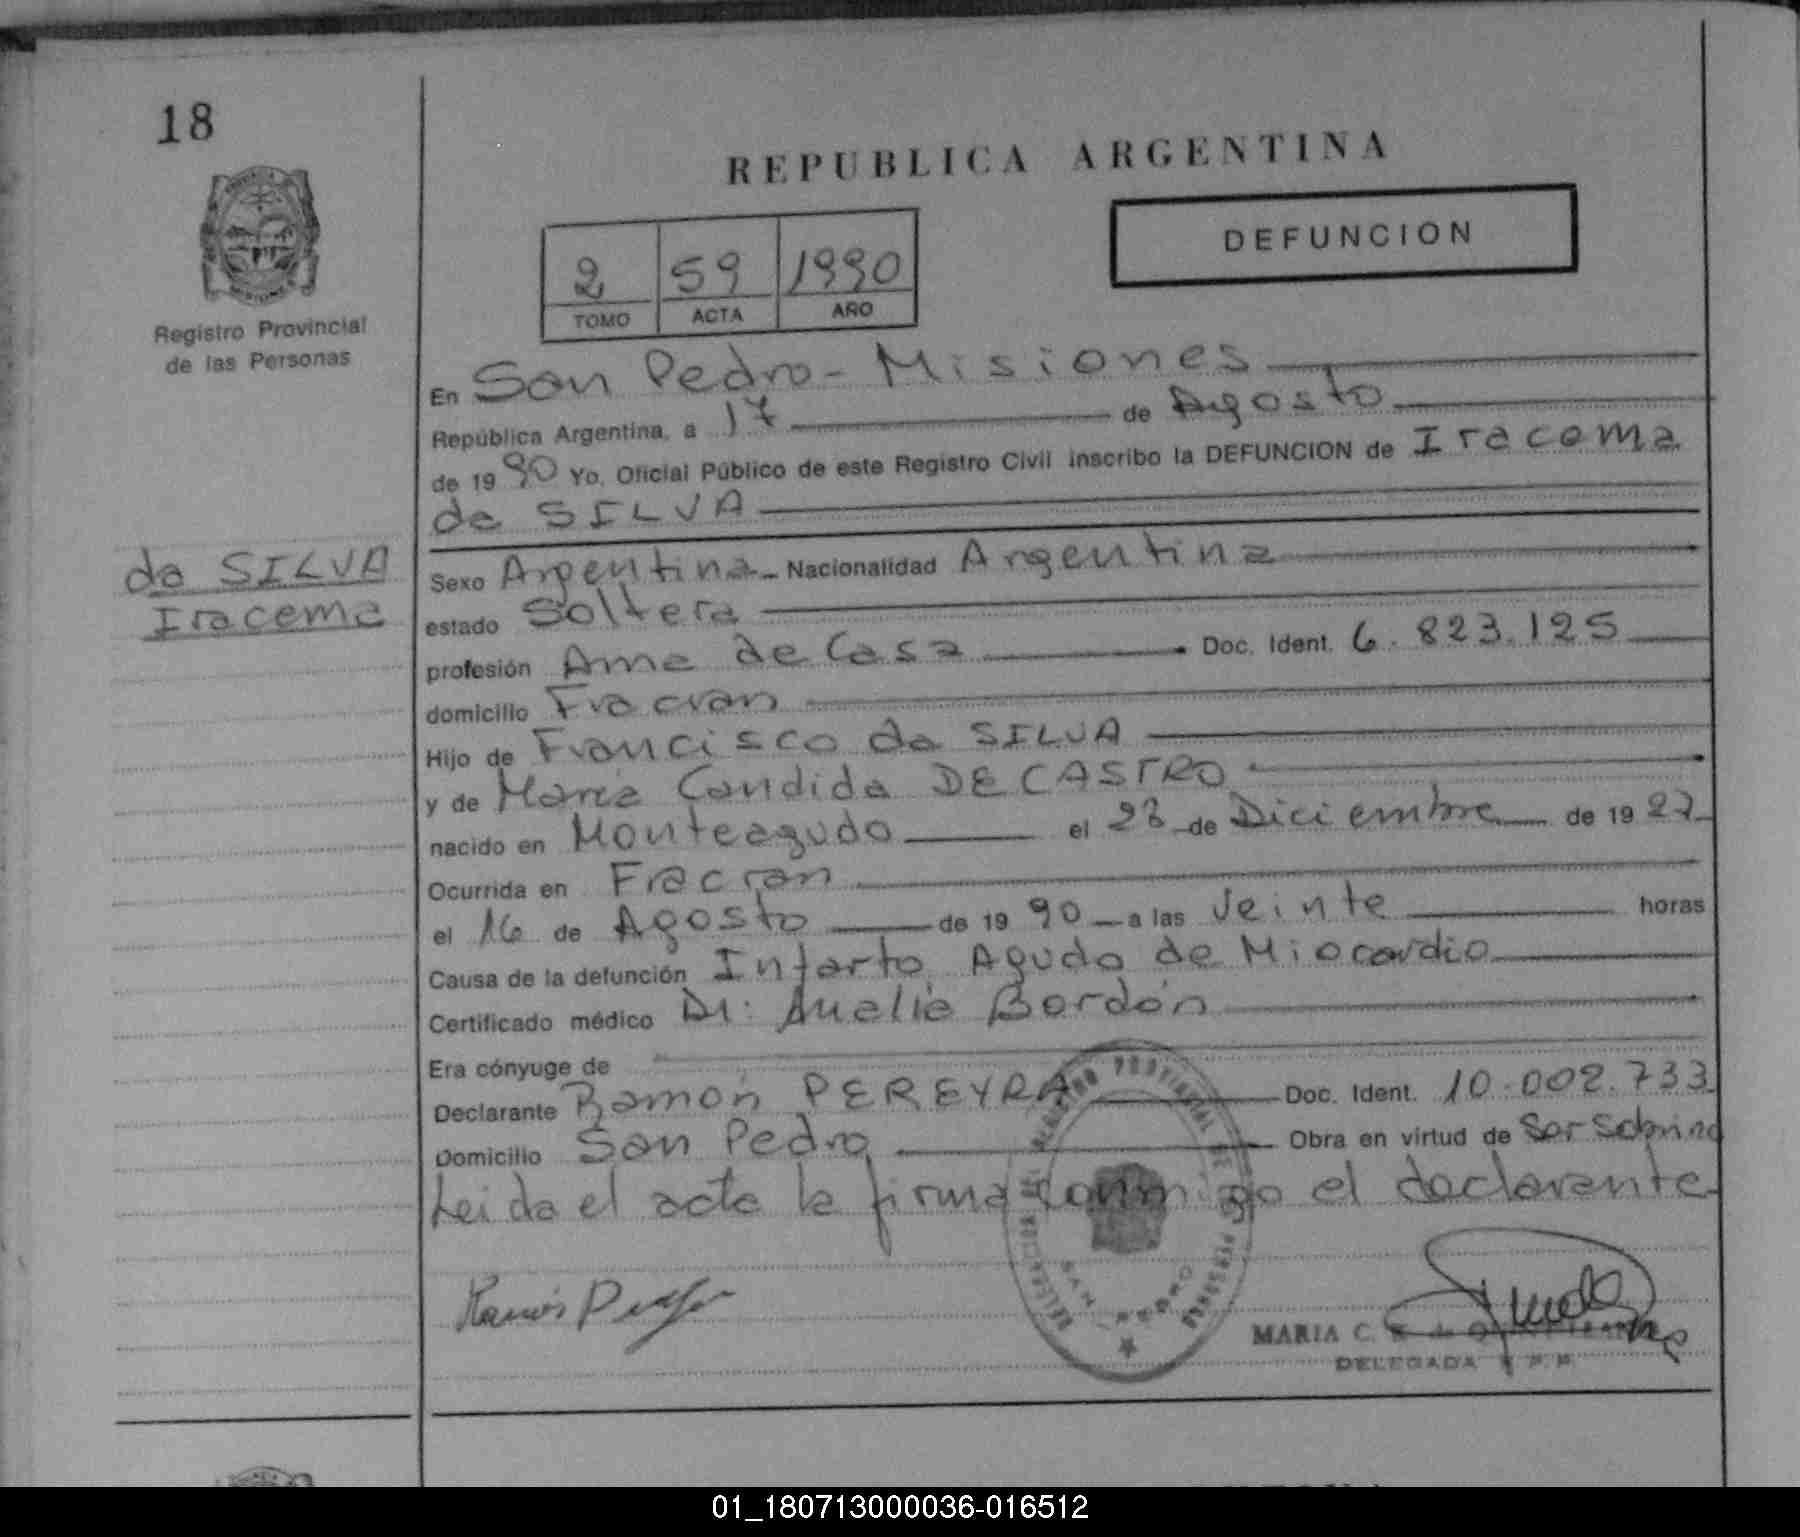 18
REPUBLICA ARGENTINA
DEFUNCION
2 59 1990
TOMO ACTA AÑO
Registro Provincial
de las Personas
En San Pedro - Misiones
República Argentina, a 17 de Agosto
de 1990 Yo, Oficial Público de este Registro Civil inscribo la DEFUNCION de Iracema
da SILVA
da SILVA
Iracema
Sexo Argentina Nacionalidad Argentina
estado Soltera
profesión Ama de Casa Doc. Ident. 6.823.125
domicilio Fracran
Hijo de Francisco da SILVA
y de Maria Candida DE CASTRO
nacido en Monteagudo el 23 de Diciembre de 1927
Ocurrida en Fracran
el 16 de Agosto de 1990 a las veinte horas
Causa de la defunción Infarto Agudo de Miocardio
Certificado médico Dr: Amelia Bordón
Era cónyuge de
Declarante Ramón PEREYRA Doc. Ident. 10.002.733
Domicilio San Pedro Obra en virtud de Ser Sobrino
Leida el acta la firma conmigo el declarante
REGISTRO PROVINCIAL DE PERSONAS
SAN PEDRO
Ramón
MARIA C.
DELEGADA
01_180713000036-016512